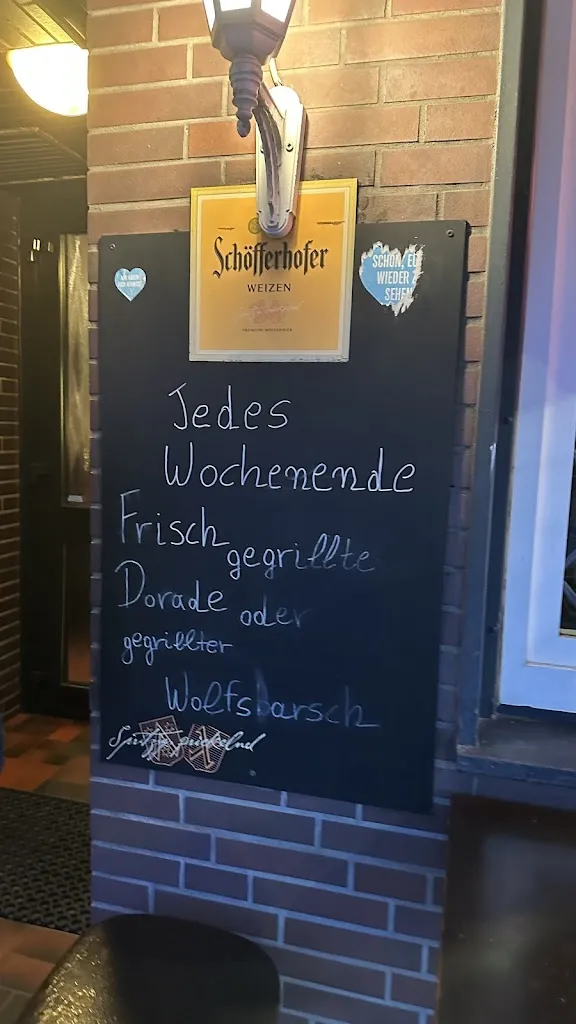 Schöfferhofer
WEIZEN
SCHÖN, EU
WIEDER Z
SEHEN
Jedes
Wochenende
Frisch gegrillte
Dorade oder
gegrillter
Wolfsbarsch
Spritzig prickelnd